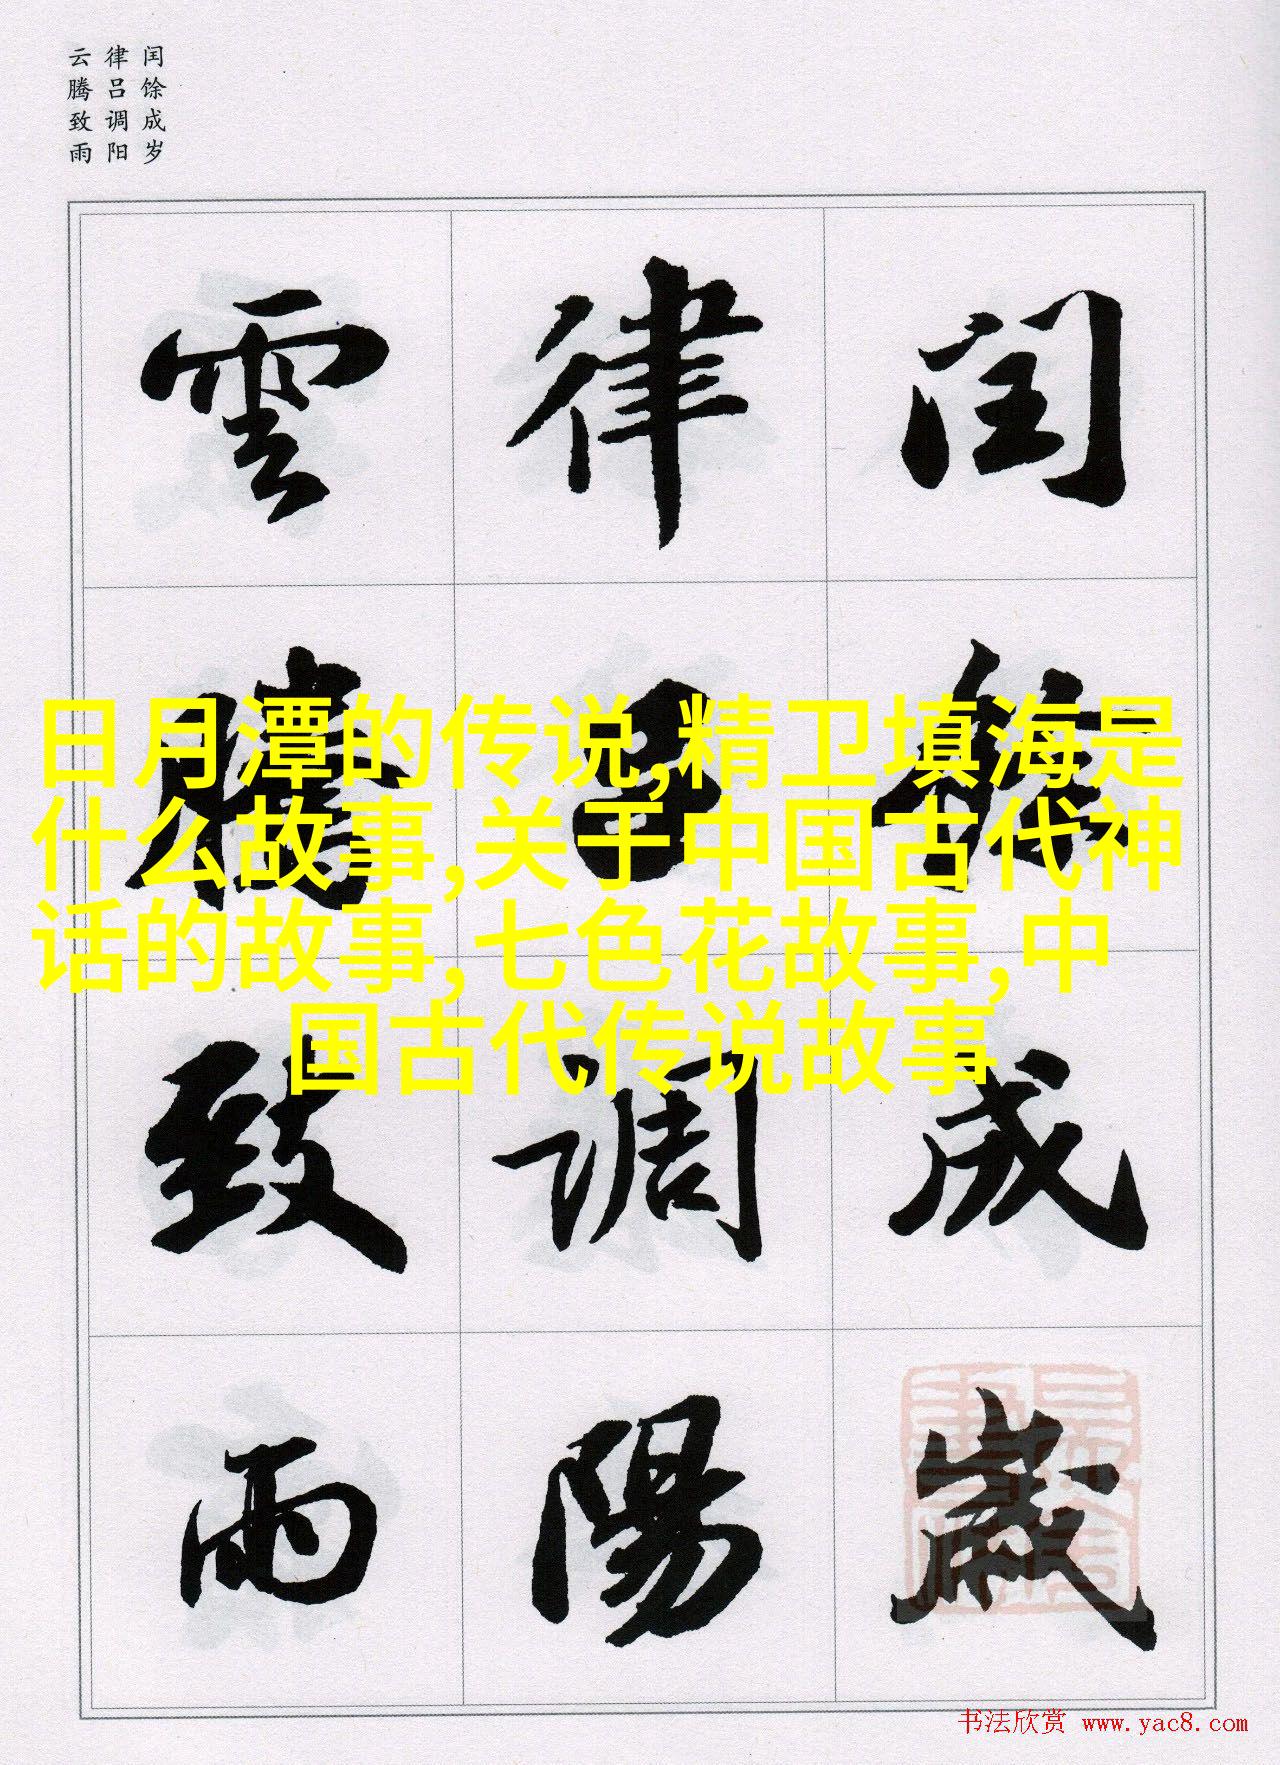 闰馀成岁
律吕调阳
云腾致雨
閏餘成歲
律吕調陽
雲騰致雨
日月潭的传说,精卫填海是
什么故事,关于中国古代神
话的故事,七色花故事,中
国古代传说故事
书法欣赏 www.yac8.com